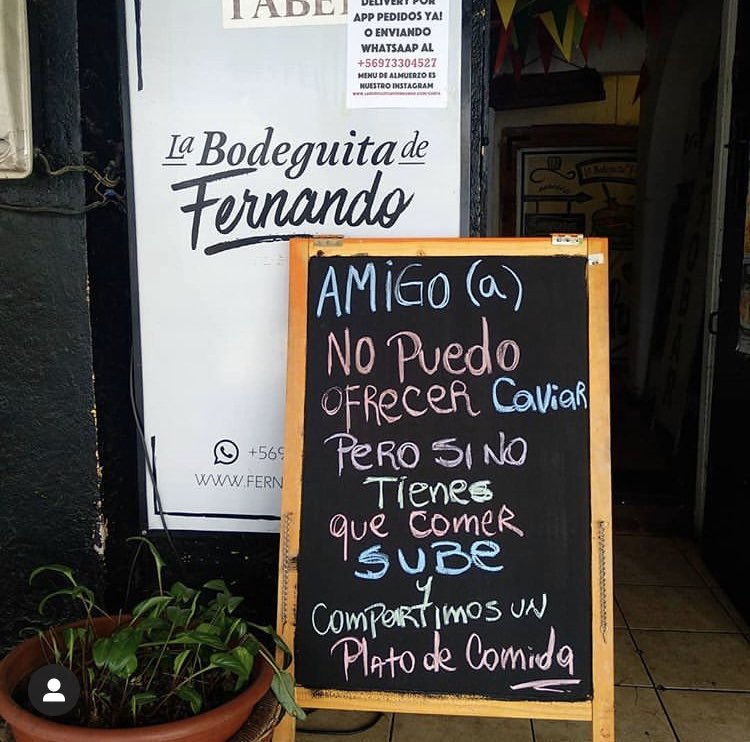 TABE
DELIVERY POR
APP PEDIDOS YA!
O ENVIANDO
WHATSAAP AL
+56973304527
MENU DE ALMUERZO ES
NUESTRO INSTAGRAM
La Bodeguita de
Fernando
+569
WWW.FERN
AMIGO (a)
NO PUEDO
OFRECER CaViaR
PERO SI NO
TIENES
QUE COMER
SUBE
Y
COMPARTIMOS UN
PLATO de Comida